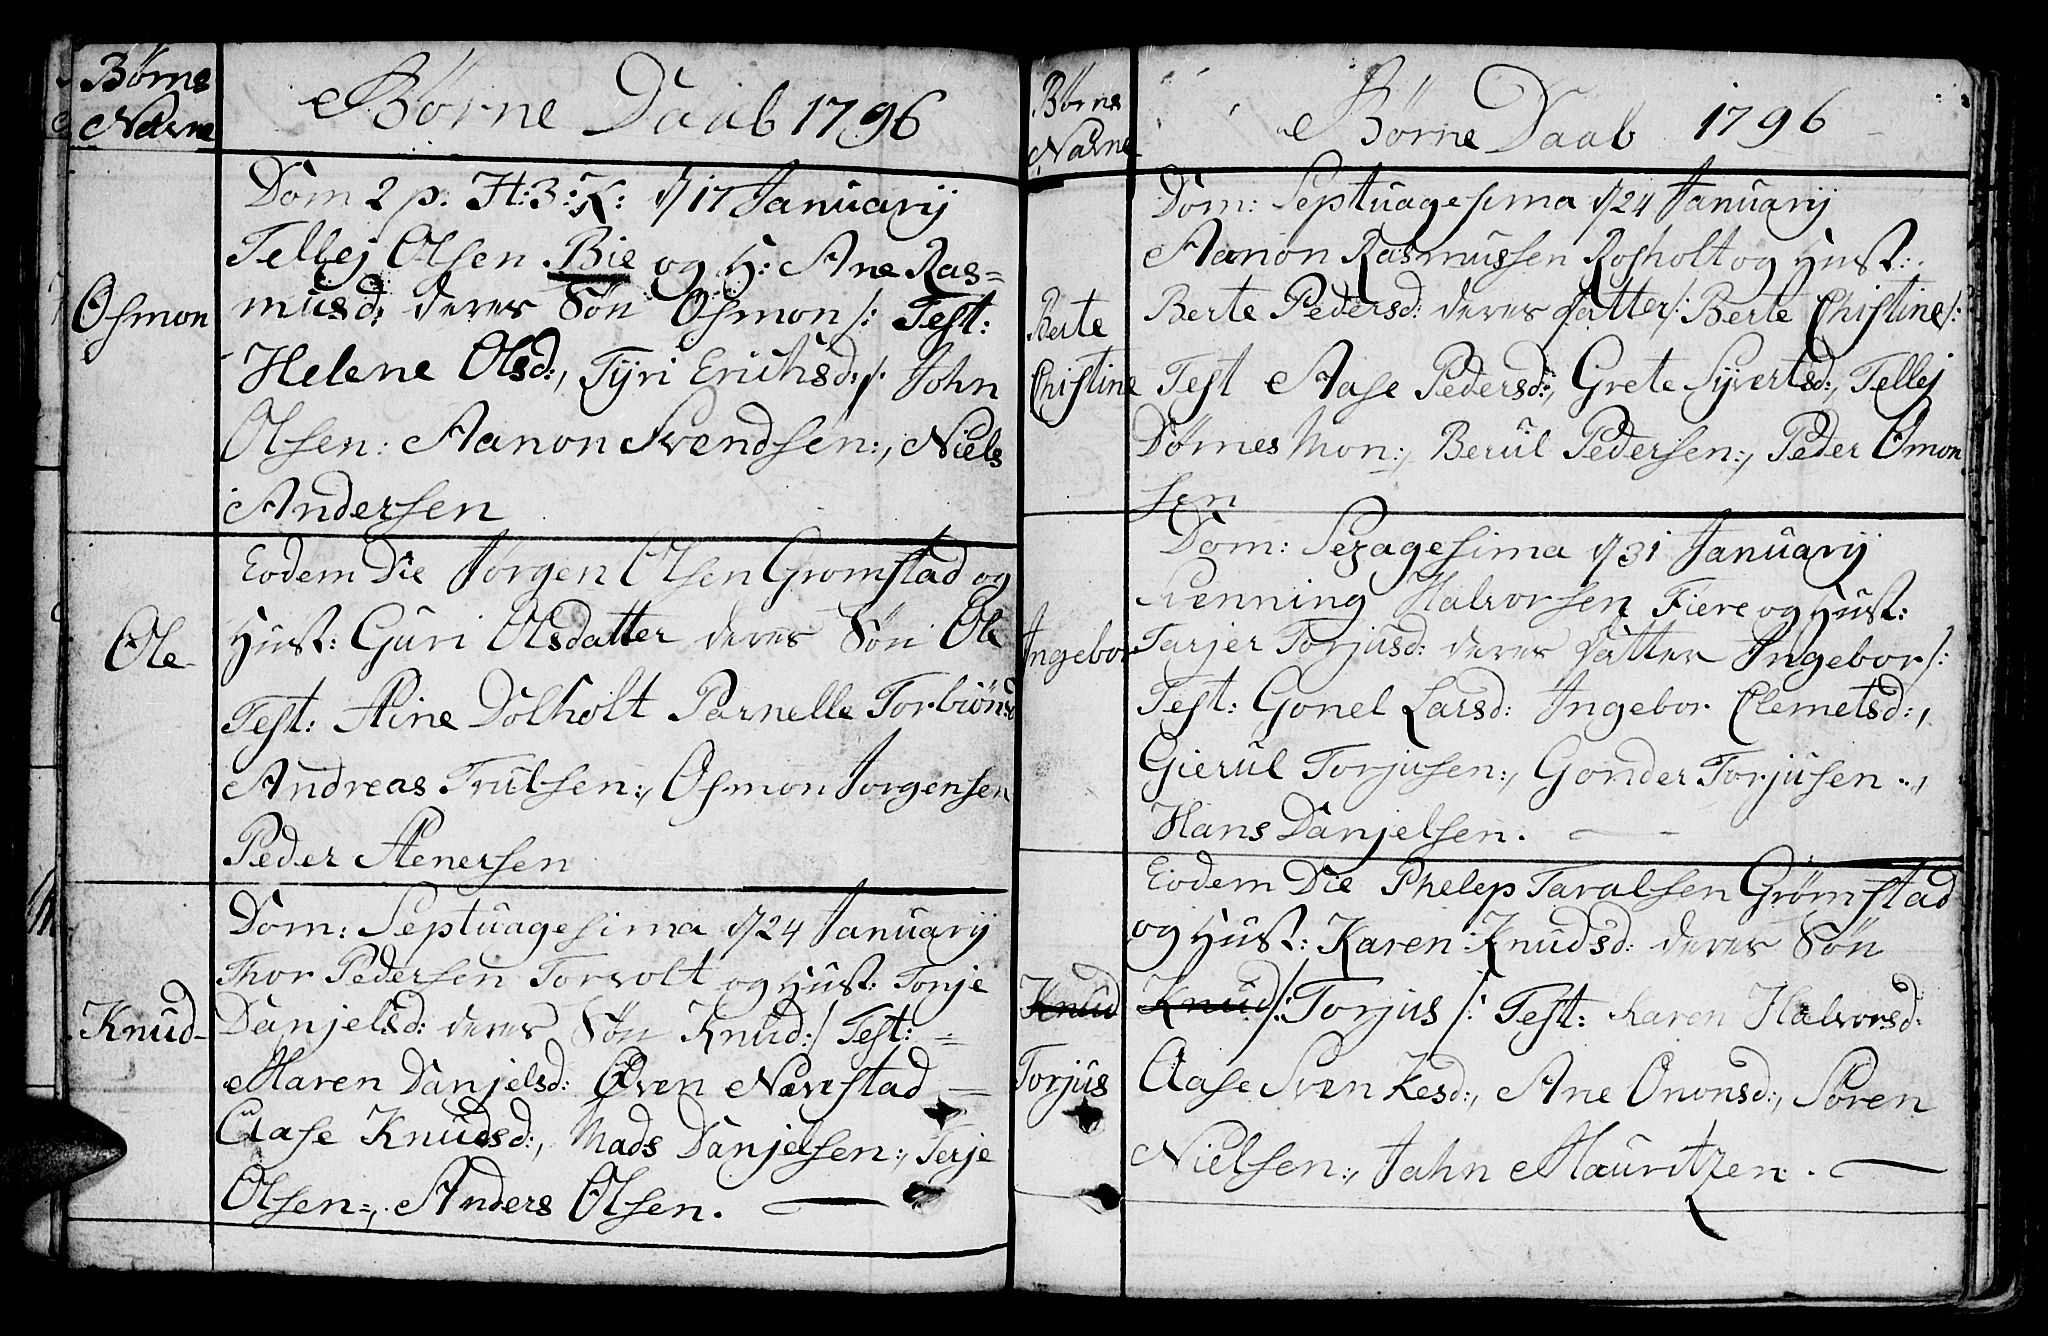 Børns
Navne
Børne Daab 1796
Osmon
Dom 2 p: H:3:K: d 17 Januarij
Tellej Olsen Bie og H: Ane Ras=
musd: deres Søn Osmon /: Test:
Helene Olsd:, Tÿri Erichsd:, /: John
Olsen: Aanon Svendsen:, Niels
Andersen
Ole
Eodem Die Jørgen Olsen Gromstad og
Hust: Guri Olsdatter deres Søn Ole
Test: Aine Dolholt Parnelle Torbiønsd
Andreas Trulsen:, Osmon Jorgensen
Peder Aenersen
Knud
Dom: Septuagesima d 24 Januarij
Thor Pedersen Torvolt og Hust: Tonje
Danjelsd: deres Søn Knud:/ Test: =
Maren Danjelsd: Øven Nævestad
Aase Knudsd:, Mads Danjelsen:, Terje
Olsen=, Anders Olsen.
Børns
Navne
Børne Daab 1796
Berte
Christine
Dom: Septuagesima d 24 Januarij
Aanon Rasmussen Rosholt og Hust:
Berte Pedersd: deres Datter /: Berte Christine /:
Test Aase Pedersd:, Grete Syvertsd:, Tellej
Dørnes Mon:, Berul Pedersen:, Peder Omon
sen
Ingebor
Dom: Sexagesima d 31 Januarij
Svenning Halvorsen Fiere og Hust:
Tarjer Torjusd: deres Datter Ingebor /:
Test: Gonel Larsd: Ingebor Clemetsd:,
Gierul Torjusen:, Gonder Torjusen:,
Hans Danjelsen.
Knud
Torjus
Eodem Die Phelep Taralsen Grømstad
og Hust: Karen Knudsd: deres Søn
Knud /: Torjus /: Test: Karen Halvorsd:
Aase Svenkesd:, Ane Ononsd:, Søren
Nielsen:, Jahn Mauritzen.